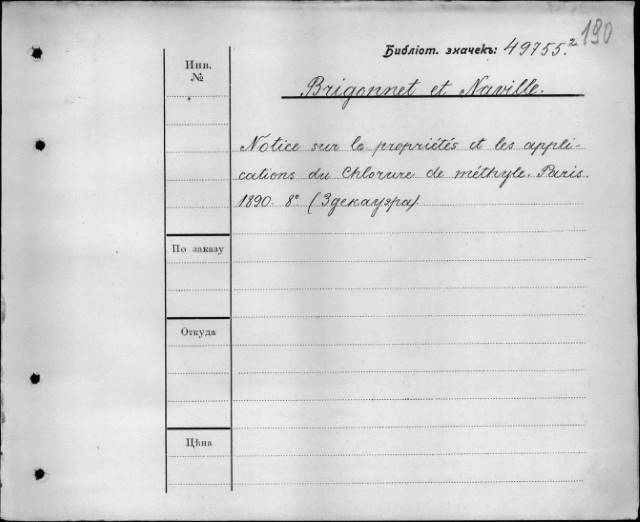 190
Библіот. значекъ: 49755.²
Инв.
№
Brigonnet et Naville.
Notice sur la propriétés et les appli-
cations du Chlorure de méthyle. Paris.
1890. 8º (Здекауэра)
По заказу
Откуда
Цѣна